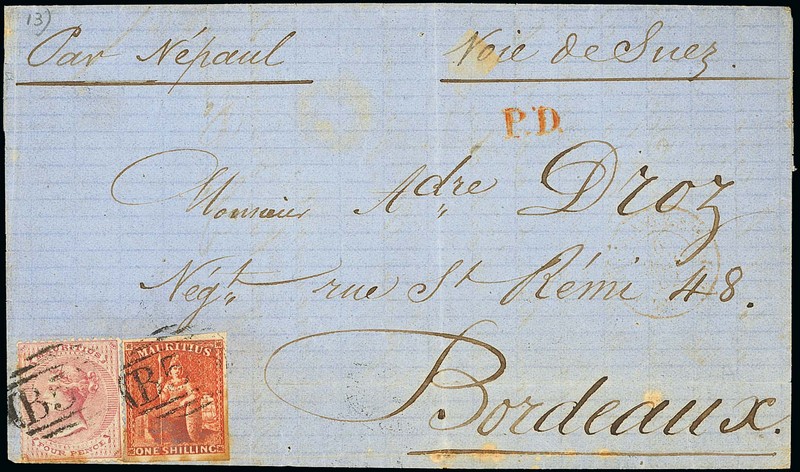 13)
Par Népaul Voie de Suez.
P.D.
Monsieur Adre Droz
Négt. rue St Rémi 48.
Bordeaux.
MAURITIUS MAURITIUS
B53 B53
FOUR PENCE ONE SHILLING